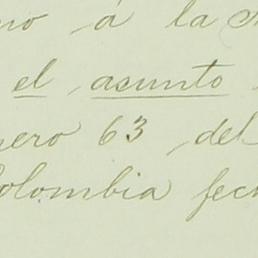 no á la
el asunto
ero 63, del
Colombia fec